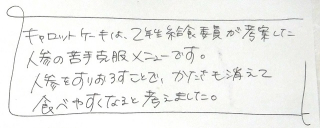 キャロットケーキは、2年生給食委員が考案した
人参の苦手克服メニューです。
人参をすりおろすことで、かたさも消えて
食べやすくなると考えました。